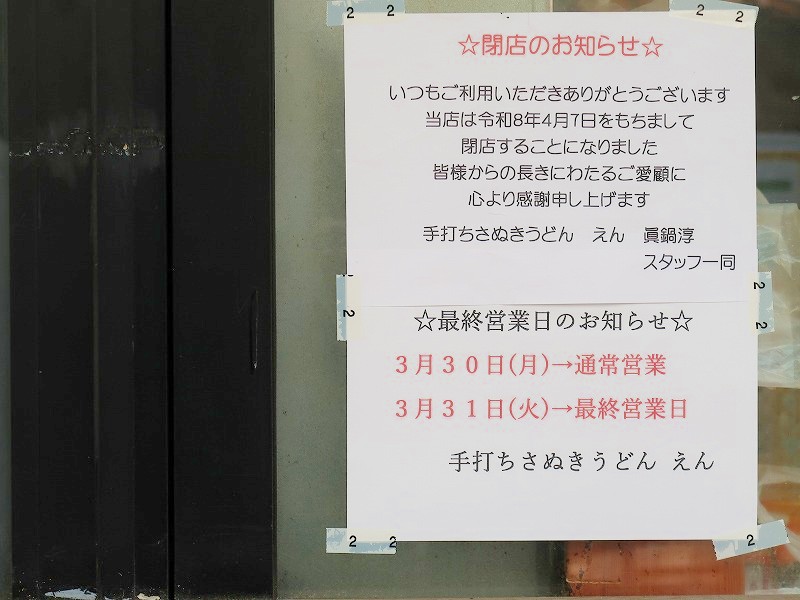 ☆閉店のお知らせ☆
いつもご利用いただきありがとうございます
当店は令和8年4月7日をもちまして
閉店することになりました
皆様からの長きにわたるご愛顧に
心より感謝申し上げます
手打ちさぬきうどん　えん　眞鍋淳
スタッフ一同
☆最終営業日のお知らせ☆
３月３０日(月)→通常営業
３月３１日(火)→最終営業日
手打ちさぬきうどん えん
2 2
2 2
2
2
2
2 2
2